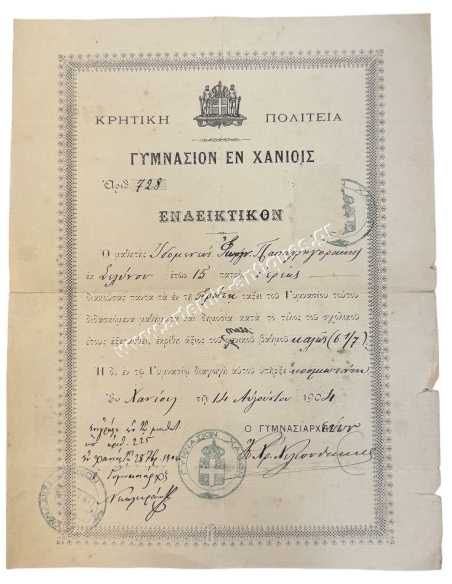 ΚΡΗΤΙΚΗ ΠΟΛΙΤΕΙΑ
ΓΥΜΝΑΣΙΟΝ ΕΝ ΧΑΝΙΟΙΣ
Ἀριθ. 728
ΕΝΔΕΙΚΤΙΚΟΝ
Ὁ μαθητὴς Ἰδομενεὺς Παπαγρηγοράκης
ἐκ Σελίνου ἐτῶν 15 πατρὸς Ἱερέως
διακούσας πάντα τὰ ἐν τῇ Πρώτῃ τάξει τοῦ Γυμνασίου τούτου
διδασκόμενα μαθήματα καὶ δημοσίᾳ κατὰ τὸ τέλος τοῦ σχολικοῦ
ἔτους ἐξετασθεὶς ἐκρίθη ἄξιος τοῦ γενικοῦ βαθμοῦ καλῶς (6 1/7)
Ἡ δὲ ἐν τῷ Γυμνασίῳ διαγωγὴ αὐτοῦ ὑπῆρξε κοσμιωτάτη
Ἐν Χανίοις τῇ 14 Αὐγούστου 1904
Ὁ ΓΥΜΝΑΣΙΑΡΧΕΥΩΝ
ἀριθ. 225
ΓΥΜΝΑΣΙΟΝ ΧΑΝΙΩΝ